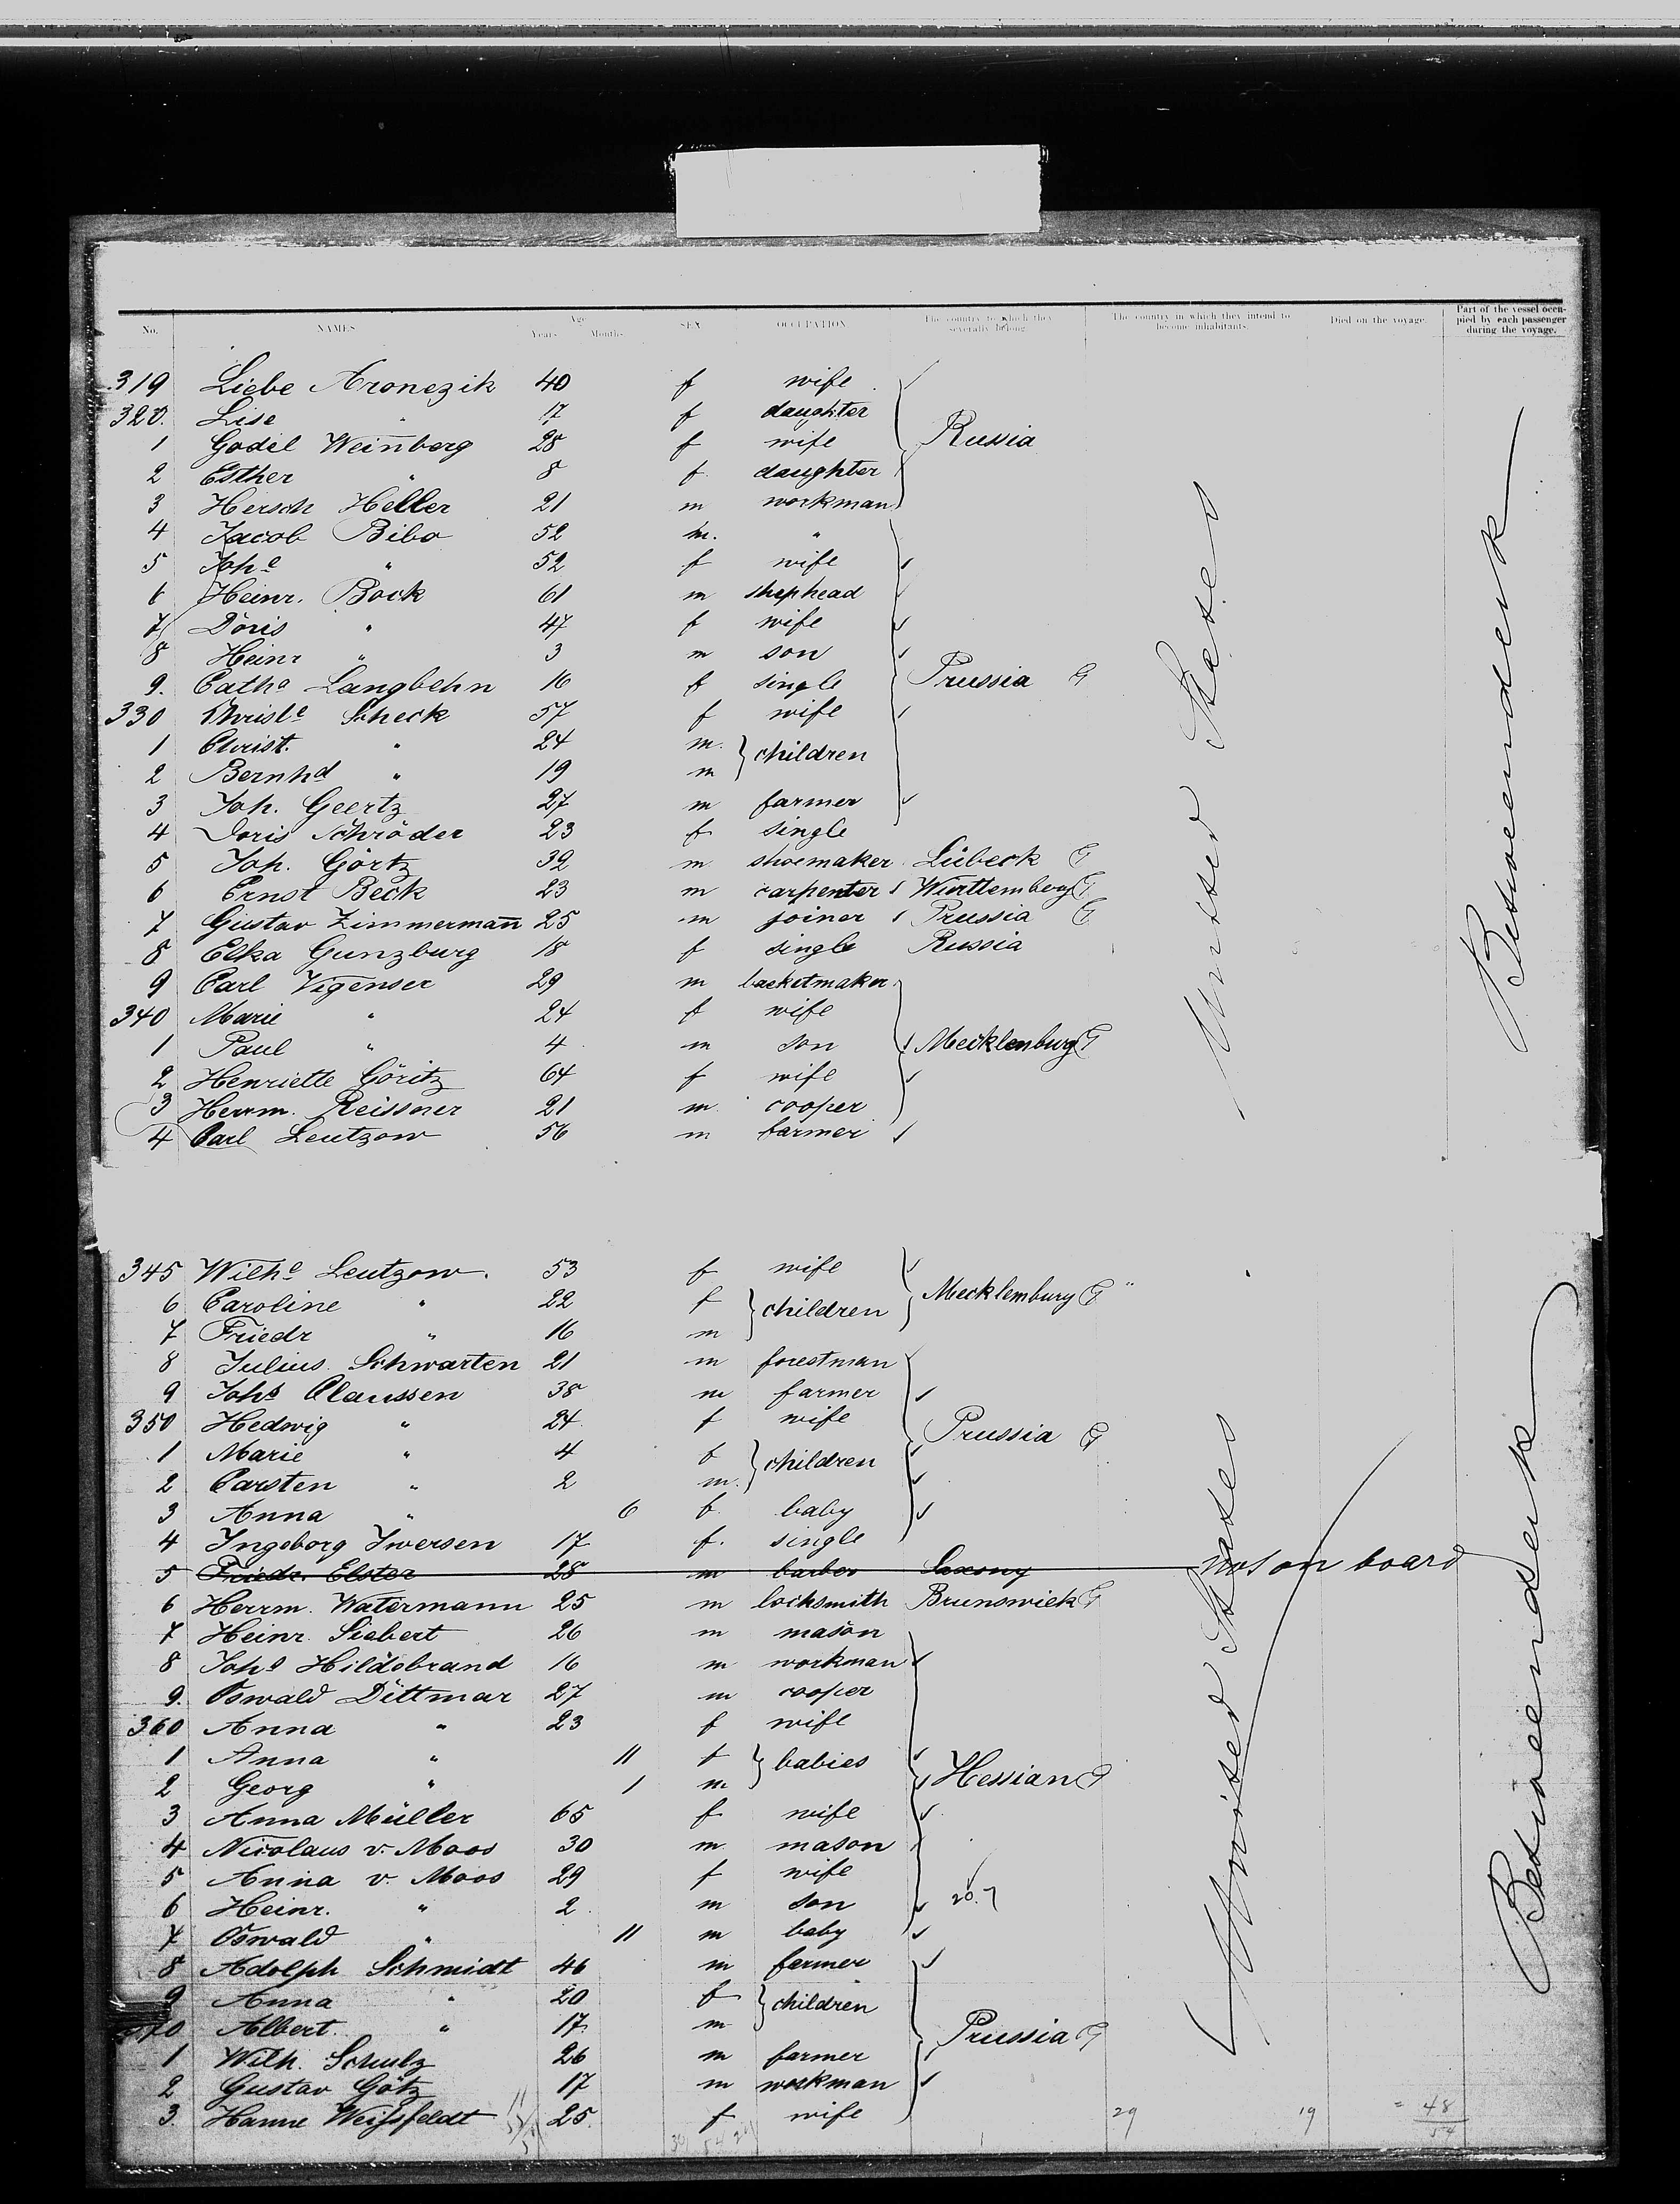 No. NAMES Age Years Months. SEX OCCUPATION The country to which they severally belong. The country in which they intend to become inhabitants. Died on the voyage. Part of the vessel occupied by each passenger during the voyage.
319 Liebe Aronezik 40 f wife
320. Lise " 17 f daughter
1 Godel Weinberg 28 f wife Russia
2 Esther " 8 f daughter
3 Hersch Heller 21 m workman
4 Jacob Bibo 52 m. "
5 Joh e " 52 f wife
6 Heinr. Bock 61 m shephead
7 Doris " 47 f wife
8 Heinr " 3 m son
9. Cath a Langbehn 16 f single Prussia G
330 Christ e Scheck 57 f wife
1 Christ. " 24 m. children
2 Bernhd " 19 m
3 Joh. Geertz 27 m farmer
4 Doris Schröder 23 f single
5 Joh. Görtz 32 m shoemaker Lübeck G
6 Ernst Beck 23 m carpenter Württemberg G
7 Gustav Zimmermann 25 m joiner Prussia G
8 Elka Gunzburg 18 f single Russia
9 Carl Vigenser 29 m basketmaker
340 Marie " 24 f wife
1 Paul " 4 m son Mecklenburg G
2 Henriette Göritz 64 f wife
3 Herrm. Reissner 21 m cooper
4 Carl Leutzow 56 m farmer
United States
Betweendenk
345 Wilh e Leutzow. 53 f wife
6 Caroline " 22 f children Mecklemburg G
7 Friedr " 16 m
8 Julius Schwarten 21 m forestman
9 Joh s Claussen 38 m farmer
350 Hedwig " 24 f wife Prussia G
1 Marie " 4 f children
2 Carsten " 2 m.
3 Anna " 6 f. baby
4 Ingeborg Iwersen 17 f. single
5 Friedr. Elster 28 m barber Saxony not on board
6 Herrm. Watermann 25 m locksmith Brunswick G
7 Heinr. Siebert 26 m mason
8 Joh s Hildebrand 16 m workman
9. Oswald Dittmar 27 m cooper
360 Anna " 23 f wife
1 Anna " 11 f babies Hessian G
2 Georg " 1 m
3 Anna Müller 65 f wife
4 Nicolaus v. Moos 30 m mason
5 Anna v. Moos 29 f wife
6 Heinr. " 2 m son 20.7
7 Oswald " 11 m baby
8 Adolph Schmidt 46 m farmer
9 Anna " 20 f children
370 Albert. " 17 m Prussia G
1 Wilh. Schulz 26 m farmer
2 Gustav Götz 17 m workman
3. Hanne Weissfeldt 25. f wife
29 19 = 48
54
United States
Betweendenk